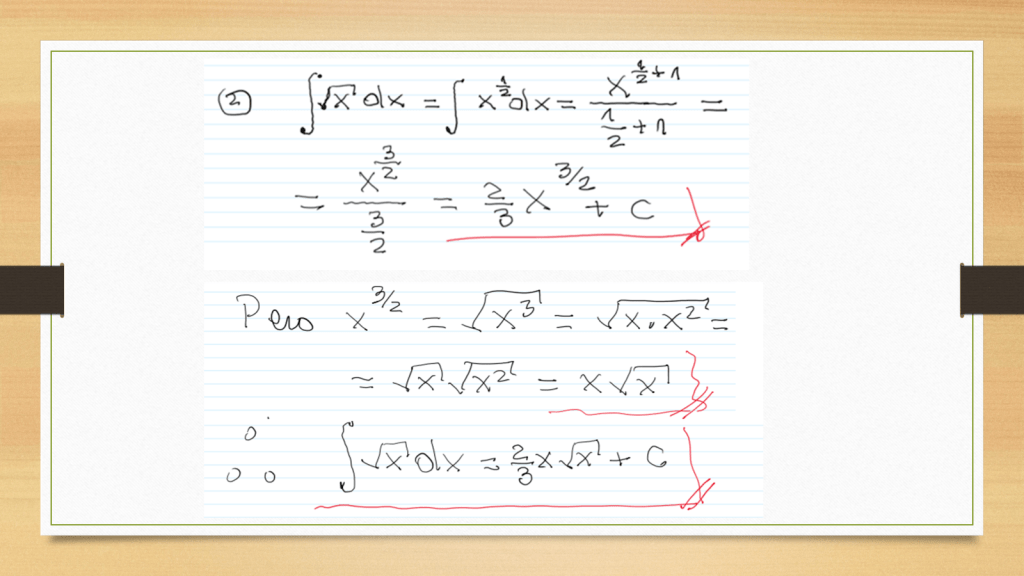 (2) ∫√x dx = ∫ x^{1/2} dx = \frac{x^{1/2+1}}{\frac{1}{2}+1} =
= \frac{x^{3/2}}{\frac{3}{2}} = \frac{2}{3} x^{3/2} + C
Pero x^{3/2} = √(x^3) = √(x·x^2) =
= √x √(x^2) = x√x
∴ ∫√x dx = \frac{2}{3} x√x + C